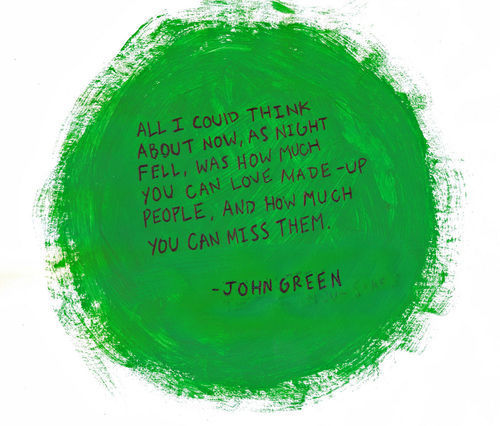 ALL I COULD THINK
ABOUT NOW, AS NIGHT
FELL, WAS HOW MUCH
YOU CAN LOVE MADE-UP
PEOPLE, AND HOW MUCH
YOU CAN MISS THEM.
-JOHN GREEN